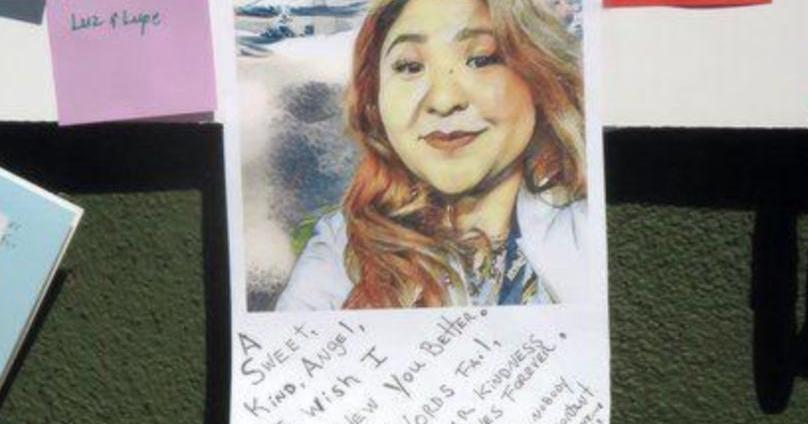 Luz & Lupe
A
SWEET,
KIND, ANGEL,
I WISH I
KNEW YOU BETTER.
WORDS FAIL,
KINDNESS
FOREVER.
NOBODY